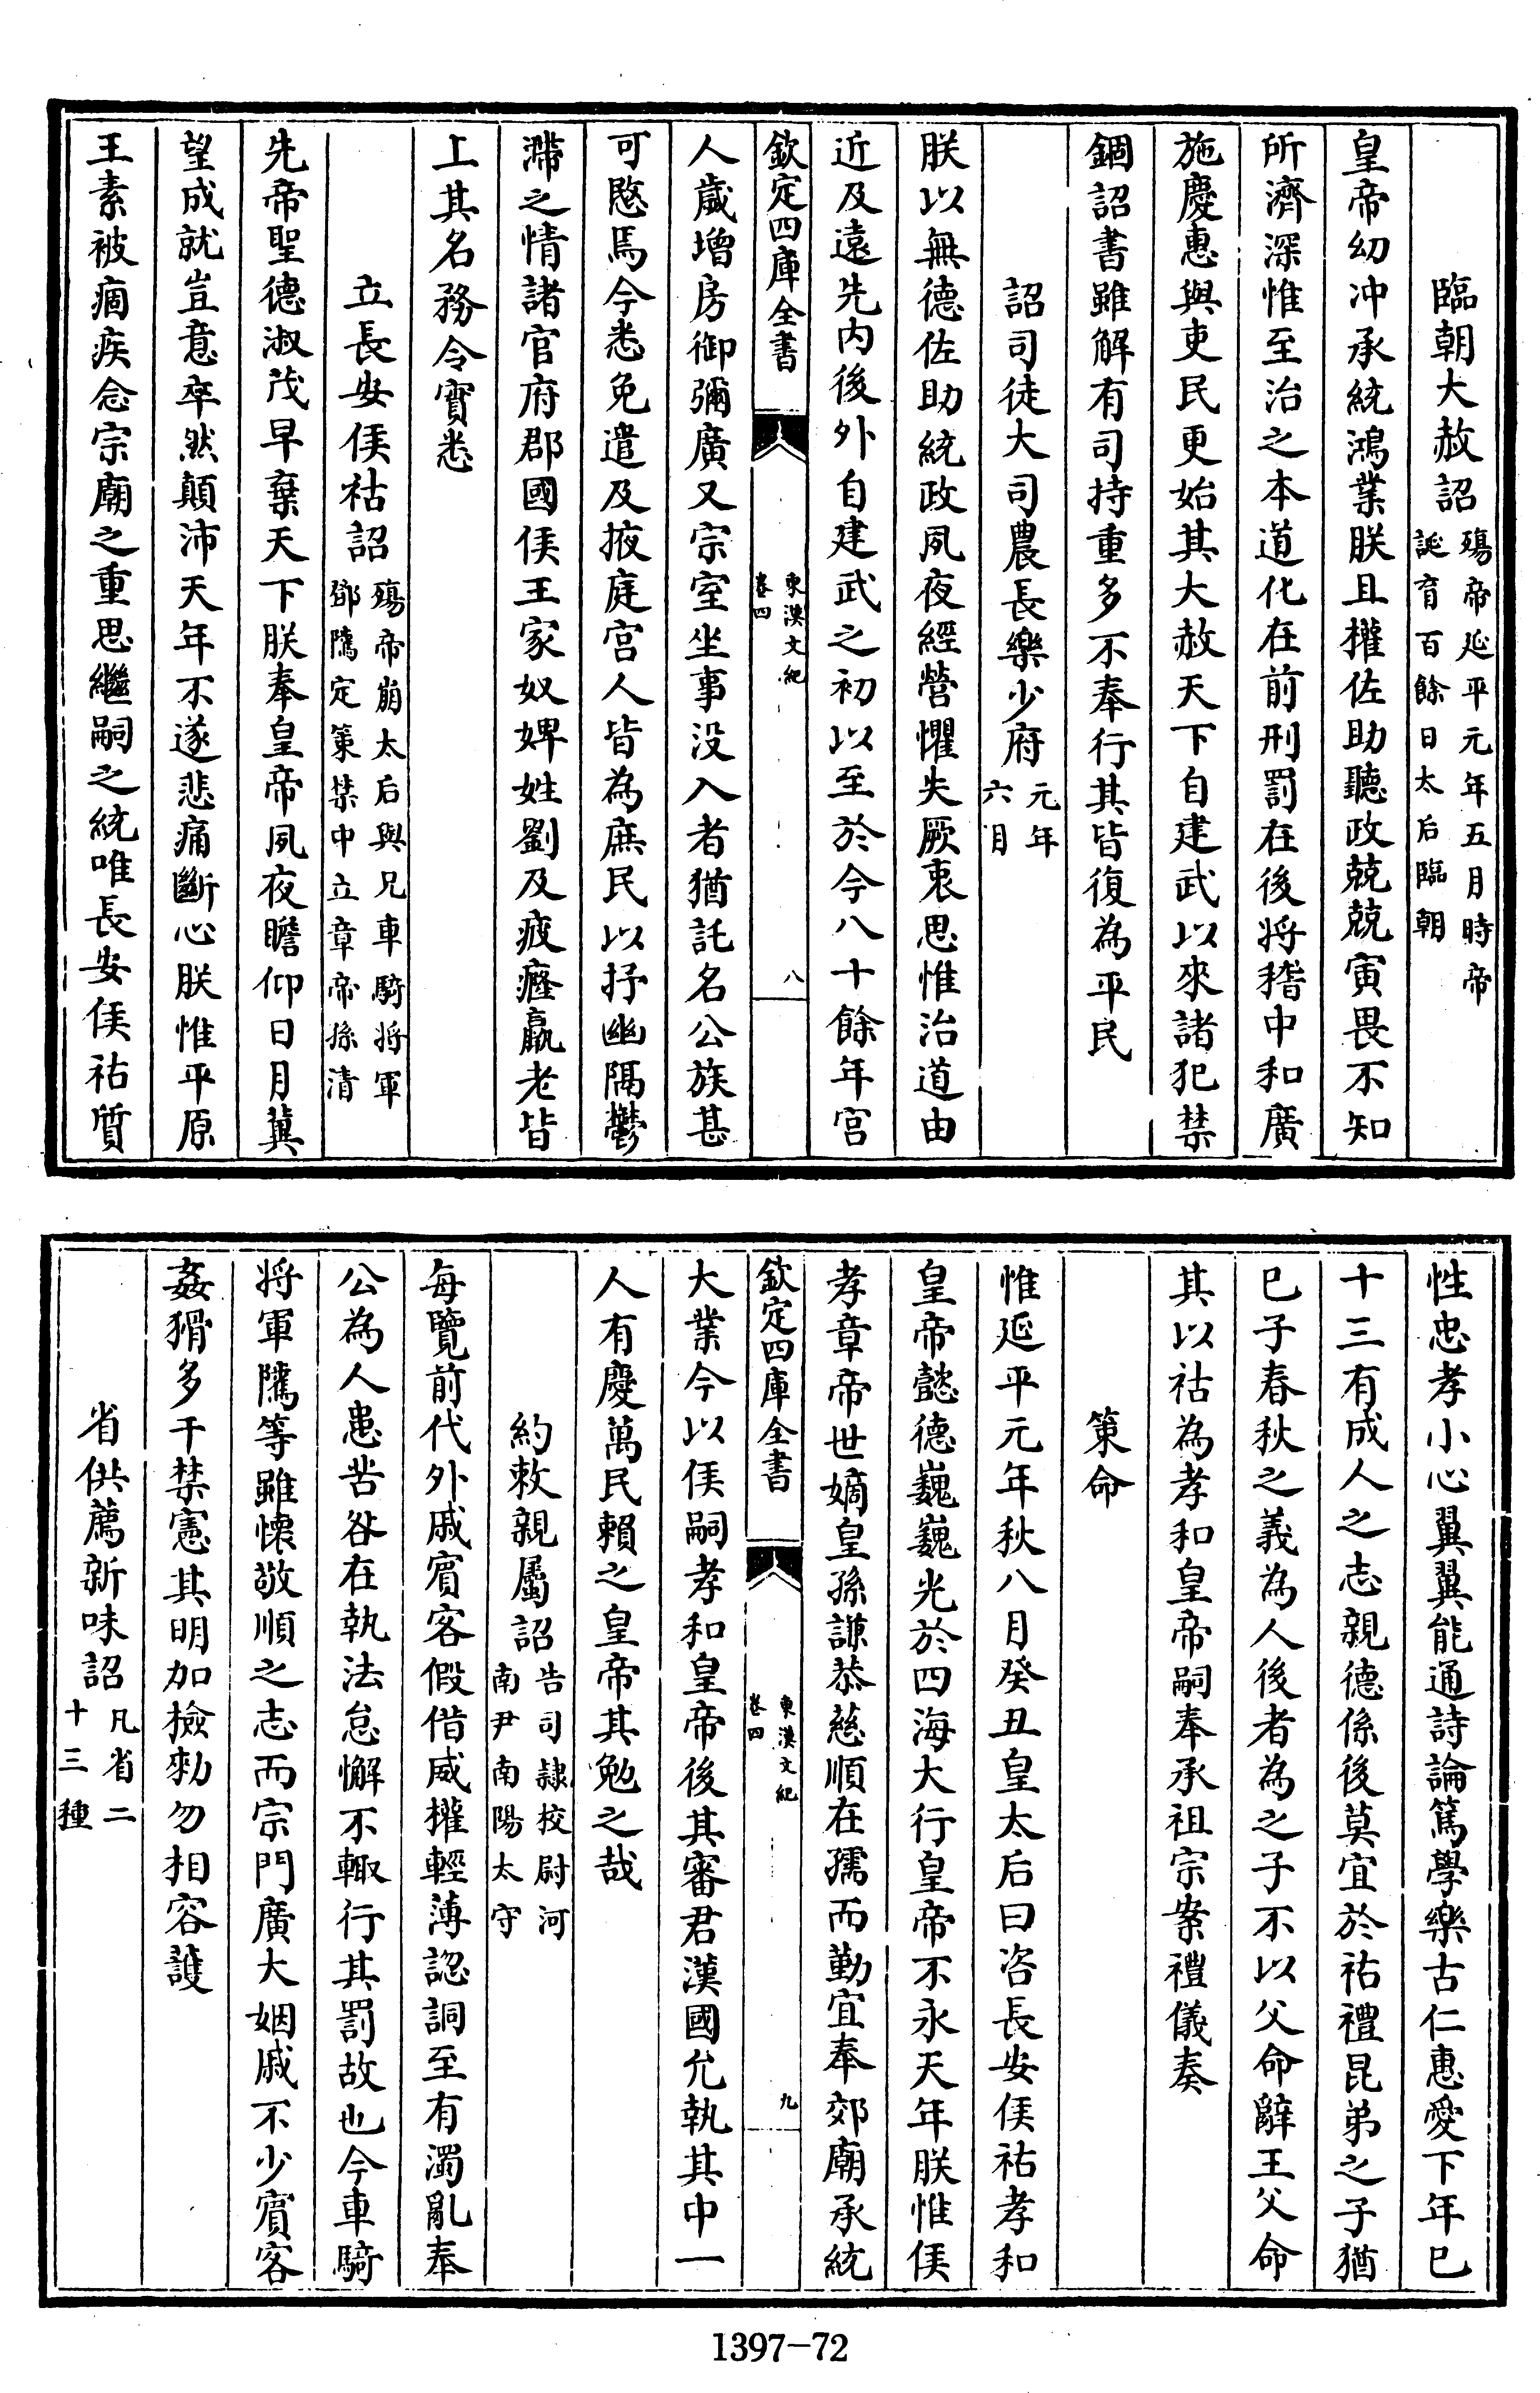 臨朝大赦詔殤帝延平元年五月時帝誕育百餘日太后臨朝
皇帝幼冲承統鴻業朕且權佐助聽政兢兢寅畏不知
所濟深惟至治之本道化在前刑罰在後將稽中和廣
施慶惠與吏民更始其大赦天下自建武以來諸犯禁
錮詔書雖解有司持重多不奉行其皆復為平民
詔司徒大司農長樂少府元年六月
朕以無德佐助統政夙夜經營懼失厥衷思惟治道由
近及遠先内後外自建武之初以至於今八十餘年宫
欽定四庫全書
東漢文紀
卷四
八
人歲增房御彌廣又宗室坐事没入者猶託名公族甚
可愍焉今悉免遣及掖庭宫人皆為庶民以抒幽隔鬱
滯之情諸官府郡國侯王家奴婢姓劉及疲癃羸老皆
上其名務令實悉
立長安侯祜詔殤帝崩太后與兄車騎將軍鄧隲定策禁中立章帝孫清
先帝聖德淑茂早棄天下朕奉皇帝夙夜瞻仰日月冀
望成就豈意卒然顛沛天年不遂悲痛斷心朕惟平原
王素被痼疾念宗廟之重思繼嗣之統唯長安侯祜質
性忠孝小心翼翼能通詩論篤學樂古仁惠愛下年已
十三有成人之志親德係後莫宜於祜禮昆弟之子猶
己子春秋之義為人後者為之子不以父命辭王父命
其以祜為孝和皇帝嗣奉承祖宗案禮儀奏
策命
惟延平元年秋八月癸丑皇太后曰咨長安侯祜孝和
皇帝懿德巍巍光於四海大行皇帝不永天年朕惟侯
孝章帝世嫡皇孫謙恭慈順在孺而勤宜奉郊廟承統
欽定四庫全書
東漢文紀
卷四
九
大業今以侯嗣孝和皇帝後其審君漢國允執其中一
人有慶萬民賴之皇帝其勉之哉
約敕親屬詔告司隸校尉河南尹南陽太守
每覽前代外戚賓客假借威權輕薄認詷至有濁亂奉
公為人患苦咎在執法怠懈不輙行其罰故也今車騎
將軍隲等雖懷敬順之志而宗門廣大姻戚不少賓客
姦猾多干禁憲其明加檢勑勿相容護
省供薦新味詔凡省二十三種
1397—72